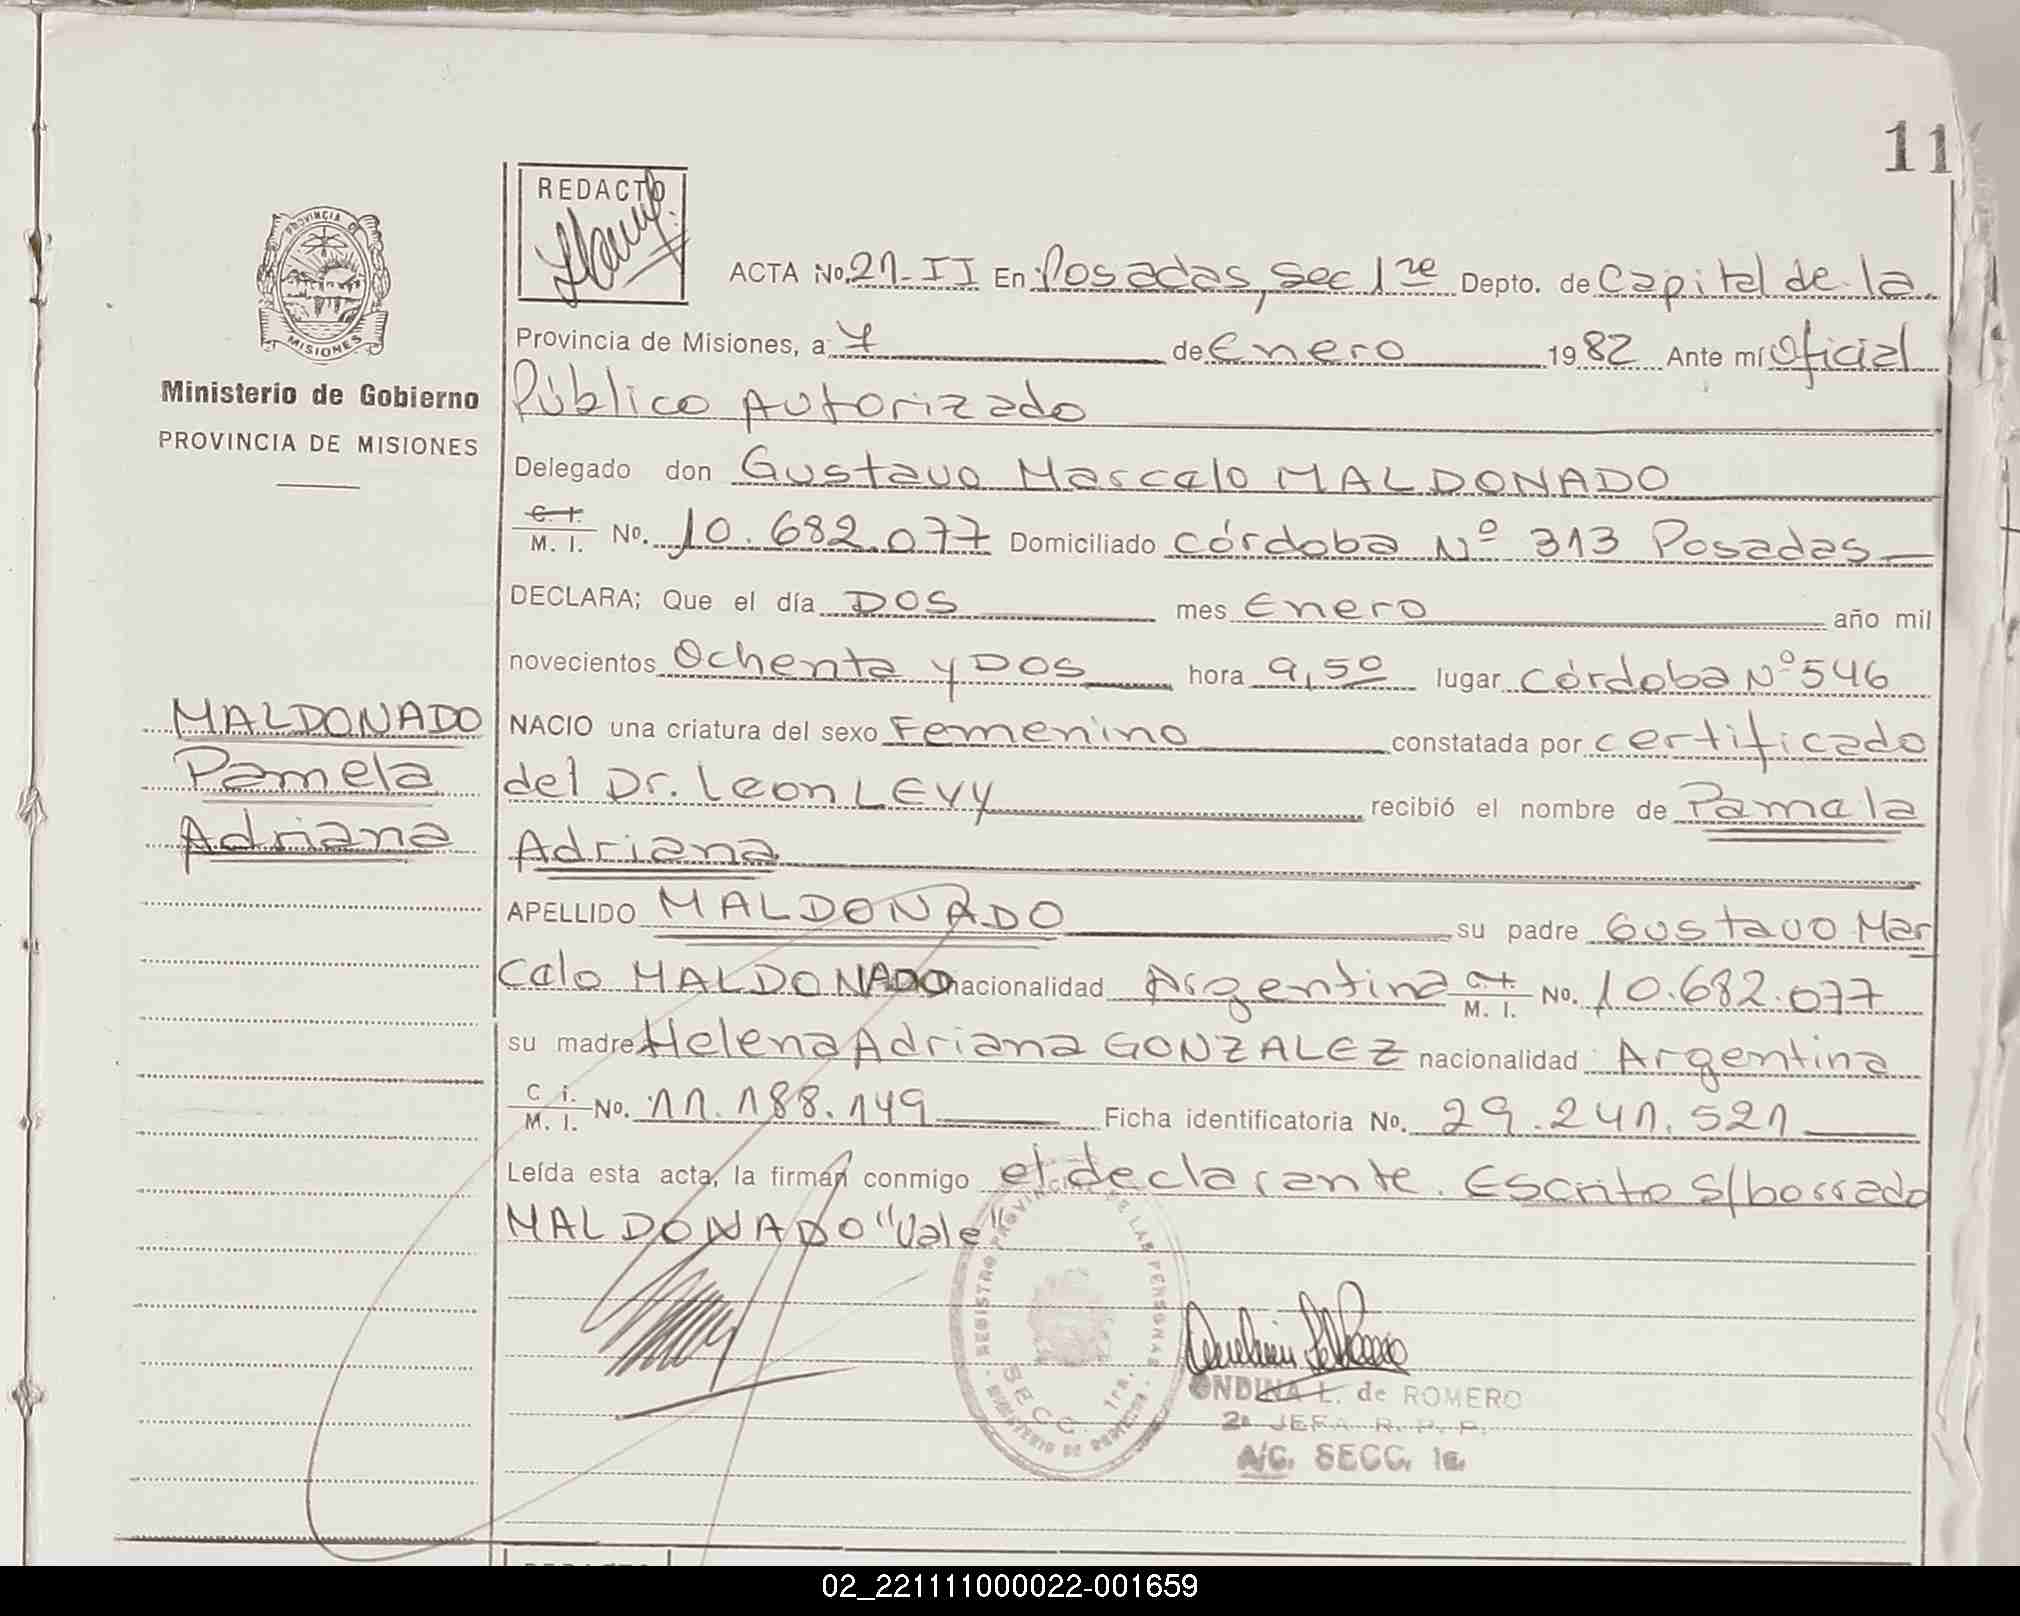 11
REDACTO
PROVINCIA DE
MISIONES
Ministerio de Gobierno
PROVINCIA DE MISIONES
ACTA No. 21-II En Posadas, Sec 1re Depto. de Capital de la
Provincia de Misiones, a 7 de Enero 1982 Ante mí Oficial
Público Autorizado
Delegado don Gustavo Marcelo MALDONADO
C. I. M. I. No. 10.682.077 Domiciliado Córdoba Nº 313 Posadas
DECLARA; Que el día DOS mes Enero año mil
novecientos Ochenta y DOS hora 9,50 lugar Córdoba Nº 546
NACIO una criatura del sexo Femenino constatada por certificado
del Dr. Leon LEVY recibió el nombre de Pamela
Adriana
MALDONADO
Pamela
Adriana
APELLIDO MALDONADO su padre Gustavo Mar
celo MALDONADO nacionalidad Argentina C. I. M. I. No. 10.682.077
su madre Helena Adriana GONZALEZ nacionalidad Argentina
C. i. M. I. No. 11.188.149 Ficha identificatoria No. 29.241.521
Leída esta acta, la firman conmigo el declarante. Escrito s/borrado
MALDONADO "Vale"
REGISTRO PROVINCIAL DE LAS PERSONAS
SECC. 1ra.
MINISTERIO DE GOBIERNO
ONDINA L. de ROMERO
2a JEFA R. P. P.
A/C. SECC. 1a.
02_221111000022-001659